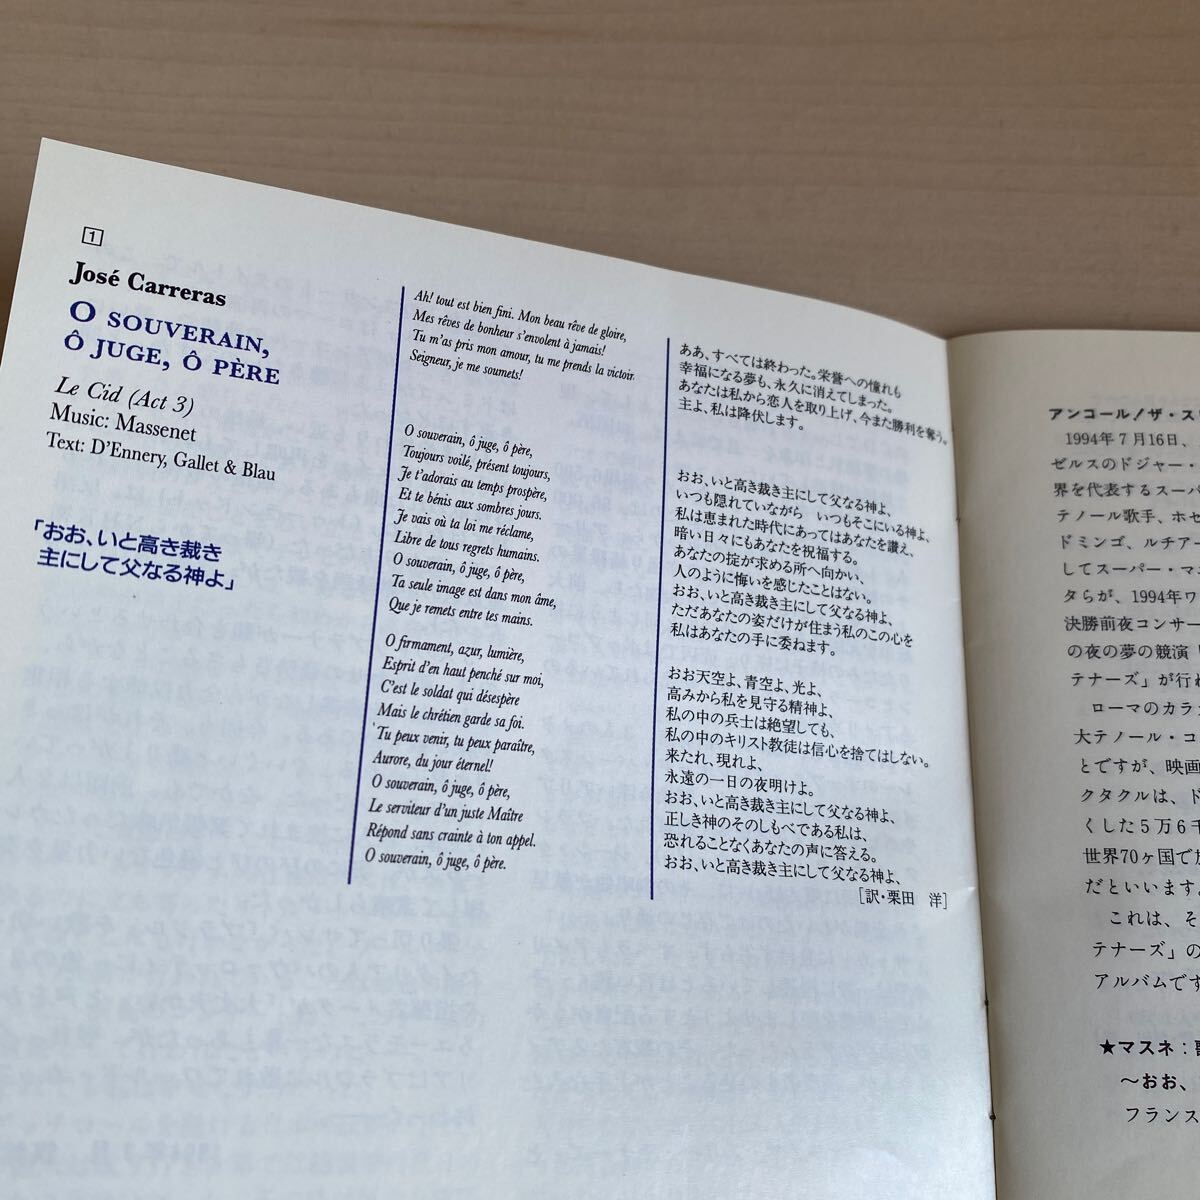 1
José Carreras
O SOUVERAIN,
Ô JUGE, Ô PÈRE
Le Cid (Act 3)
Music: Massenet
Text: D'Ennery, Gallet & Blau
「おお、いと高き裁き
主にして父なる神よ」
Ah! tout est bien fini. Mon beau rêve de gloire,
Mes rêves de bonheur s'envolent à jamais!
Tu m'as pris mon amour, tu me prends la victoir
Seigneur, je me soumets!
O souverain, ô juge, ô père,
Toujours voilé, présent toujours,
Je t'adorais au temps prospère,
Et te bénis aux sombres jours.
Je vais où ta loi me réclame,
Libre de tous regrets humains.
O souverain, ô juge, ô père,
Ta seule image est dans mon âme,
Que je remets entre tes mains.
O firmament, azur, lumière,
Esprit d'en haut penché sur moi,
C'est le soldat qui désespère
Mais le chrétien garde sa foi.
Tu peux venir, tu peux paraître,
Aurore, du jour éternel!
O souverain, ô juge, ô père,
Le serviteur d'un juste Maître
Répond sans crainte à ton appel.
O souverain, ô juge, ô père.
ああ、すべては終わった。栄誉への憧れも
幸福になる夢も、永久に消えてしまった。
あなたは私から恋人を取り上げ、今また勝利を奪う。
主よ、私は降伏します。
おお、いと高き裁き主にして父なる神よ、
いつも隠れていながら　いつもそこにいる神よ、
私は恵まれた時代にあってはあなたを讃え、
暗い日々にもあなたを祝福する。
あなたの掟が求める所へ向かい、
人のように悔いを感じたことはない。
おお、いと高き裁き主にして父なる神よ、
ただあなたの姿だけが住まう私のこの心を
私はあなたの手に委ねます。
おお天空よ、青空よ、光よ、
高みから私を見守る精神よ、
私の中の兵士は絶望しても、
私の中のキリスト教徒は信心を捨てはしない。
来たれ、現れよ、
永遠の一日の夜明けよ。
おお、いと高き裁き主にして父なる神よ、
正しき神のそのしもべである私は、
恐れることなくあなたの声に答える。
おお、いと高き裁き主にして父なる神よ、
［訳・栗田　洋］
アンコール！ザ・ス
1994年7月16日、
ゼルスのドジャー・
界を代表するスーパ
テノール歌手、ホセ
ドミンゴ、ルチアー
してスーパー・マエ
タらが、1994年ワ
決勝前夜コンサー
の夜の夢の競演「
テナーズ」が行わ
ローマのカラカ
大テノール・コ
とですが、映画
クタクルは、ド
くした5万6千
世界70ヶ国で放
だといいます。
これは、そ
テナーズ」の
アルバムです
★マスネ：
～おお、
フランス